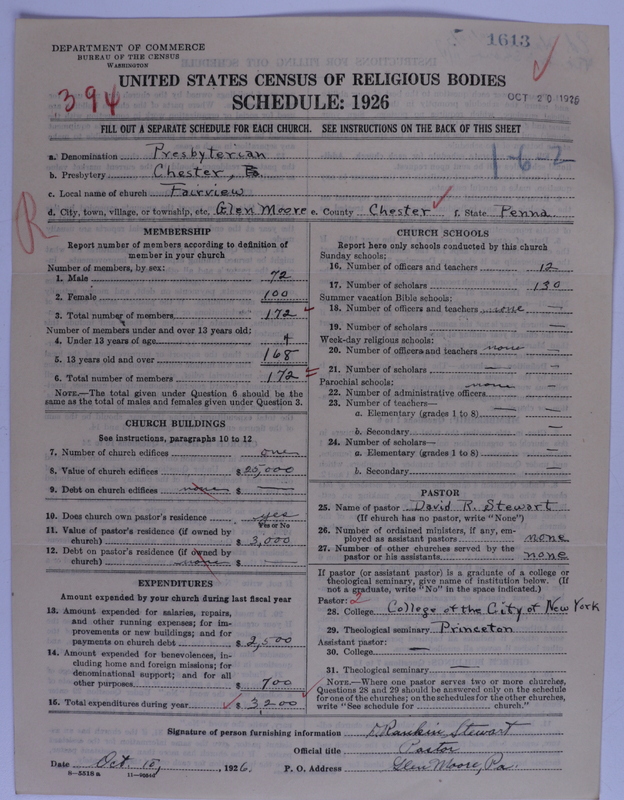 1613
DEPARTMENT OF COMMERCE
BUREAU OF THE CENSUS
WASHINGTON
UNITED STATES CENSUS OF RELIGIOUS BODIES
394
SCHEDULE: 1926
OCT 20 1926
FILL OUT A SEPARATE SCHEDULE FOR EACH CHURCH. SEE INSTRUCTIONS ON THE BACK OF THIS SHEET
a. Denomination Presbyterian
1-6-2
b. Presbytery Chester, Pa
c. Local name of church Fairview
d. City, town, village, or township, etc. Glen Moore e. County Chester f. State Penna
R
MEMBERSHIP
Report number of members according to definition of
member in your church
Number of members, by sex:
1. Male 72
2. Female 100
3. Total number of members 172
Number of members under and over 13 years old:
4. Under 13 years of age 4
5. 13 years old and over 168
6. Total number of members 172
NOTE.—The total given under Question 6 should be the
same as the total of males and females given under Question 3.
CHURCH BUILDINGS
See instructions, paragraphs 10 to 12
7. Number of church edifices one
8. Value of church edifices $ 25,000
9. Debt on church edifices none $ —
10. Does church own pastor's residence yes
Yes or No
11. Value of pastor's residence (if owned by
church) $ 3,000
12. Debt on pastor's residence (if owned by
church) none $ —
EXPENDITURES
Amount expended by your church during last fiscal year
13. Amount expended for salaries, repairs,
and other running expenses; for im-
provements or new buildings; and for
payments on church debt $ 2,500
14. Amount expended for benevolences, in-
cluding home and foreign missions; for
denominational support; and for all
other purposes $ 700
15. Total expenditures during year $ 3200
CHURCH SCHOOLS
Report here only schools conducted by this church
Sunday schools:
16. Number of officers and teachers 12
17. Number of scholars 130
Summer vacation Bible schools:
18. Number of officers and teachers none —
19. Number of scholars —
Week-day religious schools:
20. Number of officers and teachers none —
21. Number of scholars — —
Parochial schools: none
22. Number of administrative officers —
23. Number of teachers—
a. Elementary (grades 1 to 8) — —
b. Secondary —
24. Number of scholars—
a. Elementary (grades 1 to 8) — —
b. Secondary —
PASTOR
25. Name of pastor David R. Stewart
(If church has no pastor, write "None")
26. Number of ordained ministers, if any, em-
ployed as assistant pastors none
27. Number of other churches served by the
pastor or his assistants none
If pastor (or assistant pastor) is a graduate of a college or
theological seminary, give name of institution below. (If
not a graduate, write "No" in the space indicated.)
Pastor: 2
28. College College of the City of New York
29. Theological seminary Princeton
Assistant pastor:
30. College —
31. Theological seminary —
NOTE.—Where one pastor serves two or more churches,
Questions 28 and 29 should be answered only on the schedule
for one of the churches; on the schedules for the other churches,
write "See schedule for church."
Signature of person furnishing information D. Rankin Stewart
Official title Pastor
Date Oct. 15, 1926. P. O. Address Glen Moore, Pa.
8—5518 a